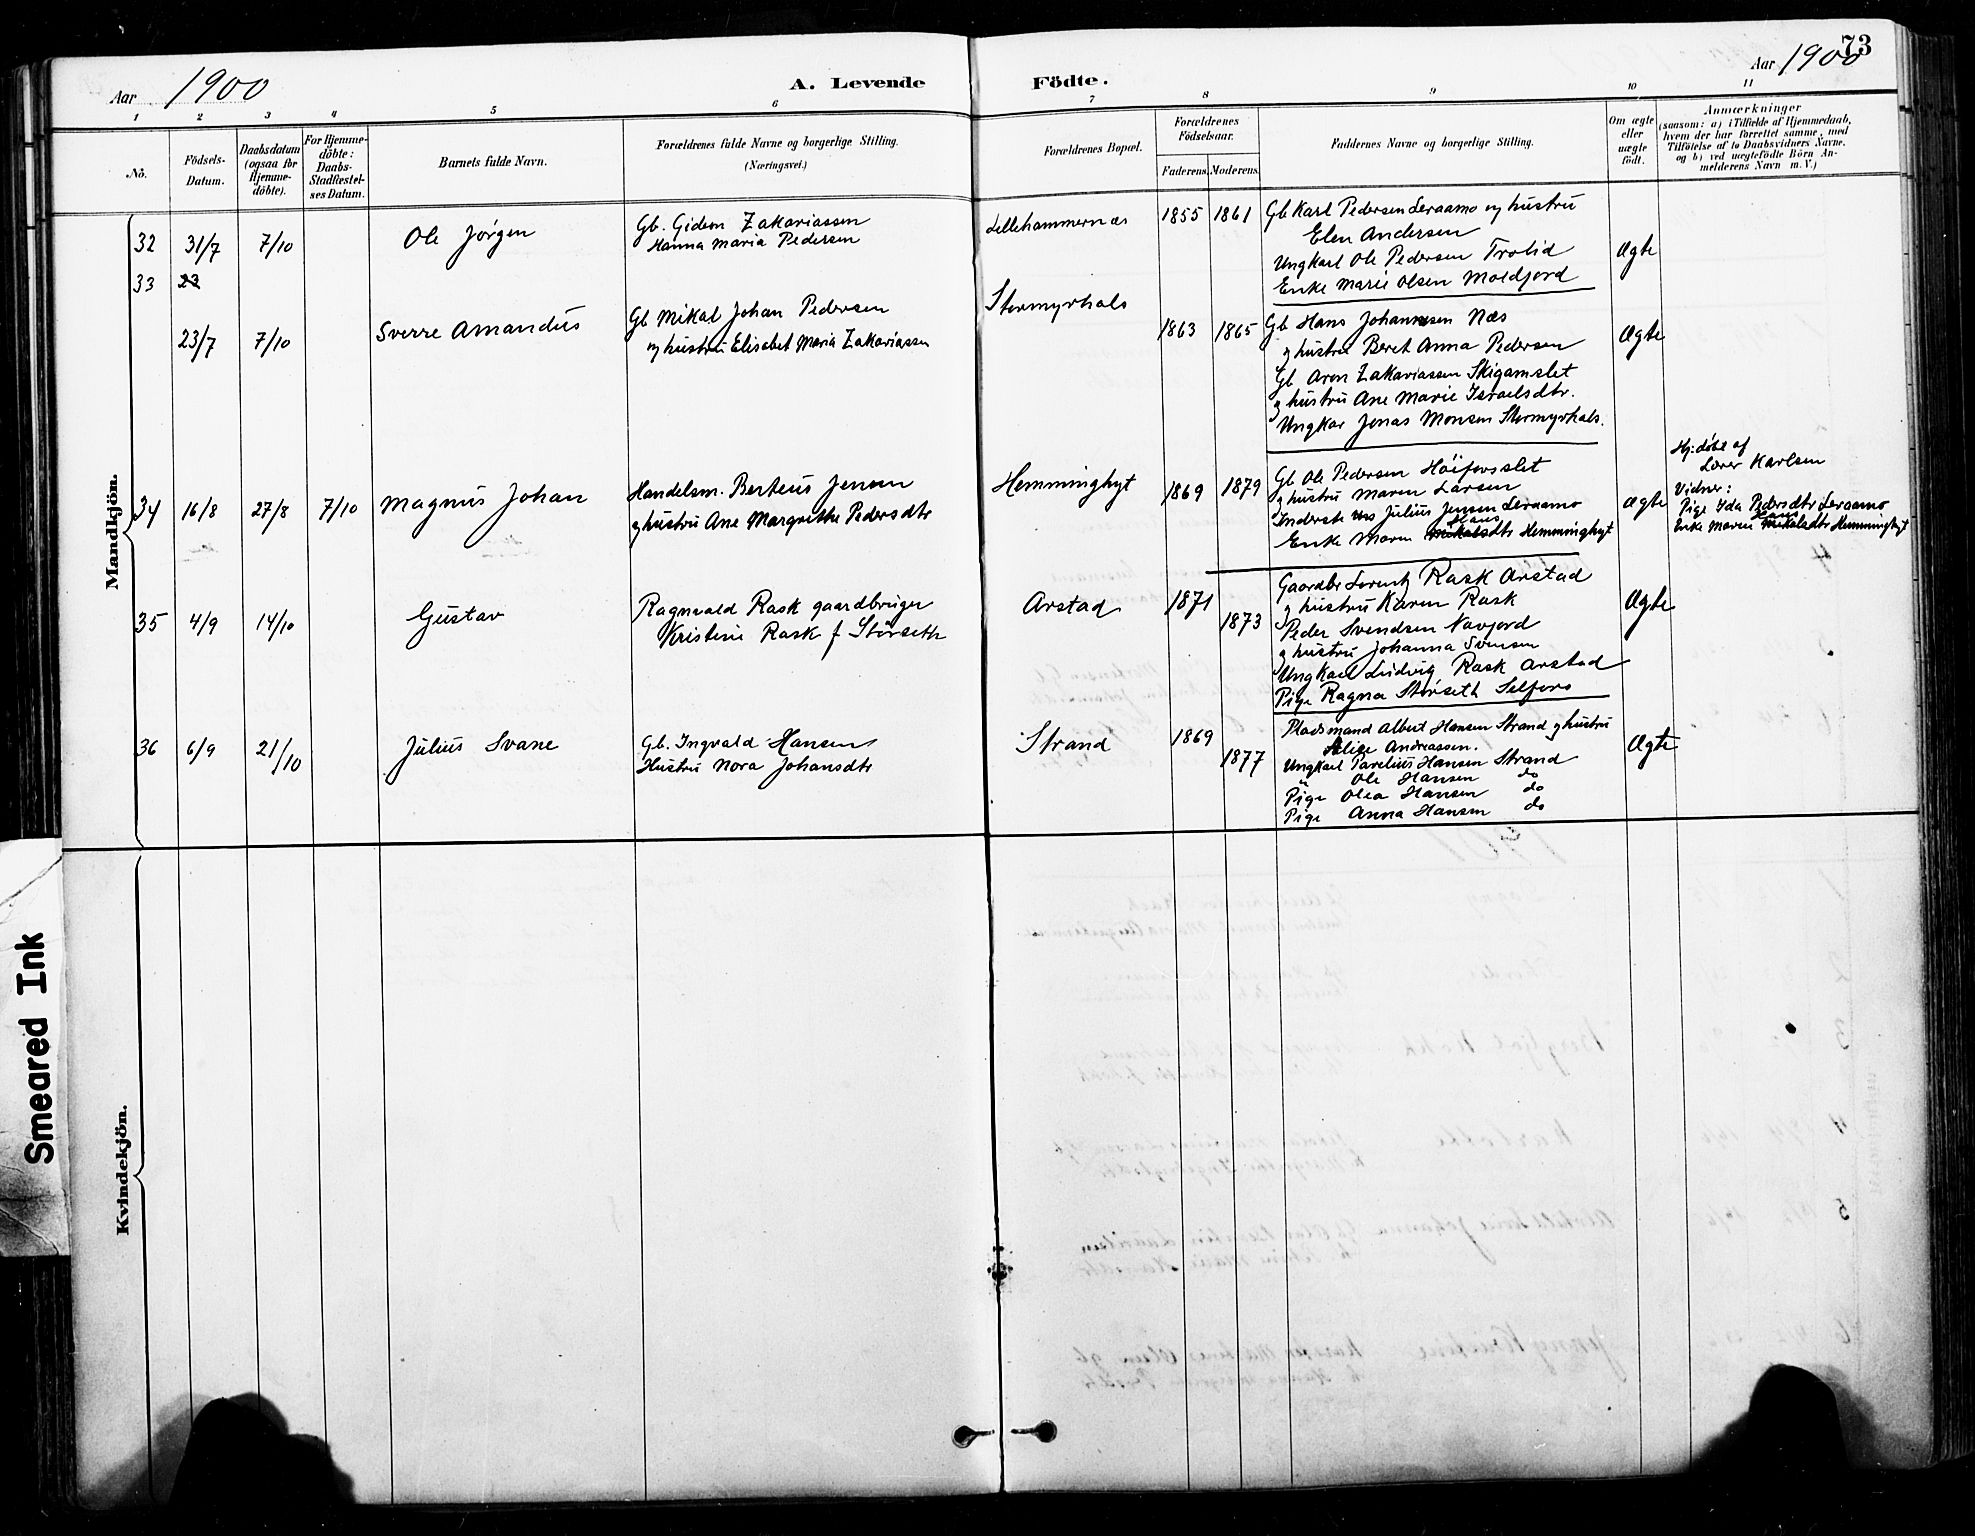 73
Aar 1900
A. Levende Födte.
Aar 1900
1 2 3 4 5 6 7 8 9 10 11
No.
Födsels-Datum.
Daabsdatum (ogsaa for Hjemme-döbte).
For Hjemme-döbte: Daabs-Stadfæstel-ses Datum.
Barnets fulde Navn.
Forældrenes fulde Navne og borgerlige Stilling.
(Næringsvei.)
Forældrenes Bopæl.
Forældrenes Födselsaar.
Faderens. Moderens.
Faddernes Navne og borgerlige Stilling.
Om ægte eller uægte födt.
Anmærkninger
(saasom: a) i Tilfælde af Hjemmedaab,
hvem der har forrettet samme, med
Tilföielse af to Daabsvidners Navne,
og b) ved uægtefödte Börn An-
melderens Navn m. V.)
Mandkjön.
32 31/7 7/10 Ole Jørgen
Gb. Gideon Zakariassen
Hanna Maria Pedersen
Lillehammernæs 1855 1861
Gb Karl Pedersen Leraamo og hustru
Elen Andersen
Ungkarl Ole Pedersen Trolid
Enke Marie Olsen Moldjord
Ægte
33 23
23/7 7/10 Sverre Amandus
Gb Mikal Johan Pedersen
og hustru Elisabet Maria Zakariassen
Stormyrhals 1863 1865
Gb Hans Johannesen Næs
og hustru Beret Anna Pedersen
Gb Aron Zakariassen Skigamslet
og hustru Ane Marie Israelsdtr.
Ungkar Jonas Monsen Stormyrhals.
Ægte
34 16/8 27/8 7/10 Magnus Johan
Handelsm. Berteus Jensen
og hustru Ane Margrethe Pedersdtr
Hemminghyt 1869 1879
Gb Ole Pedersen Höiforsslet
og hustru Maren Larsen
Inderste Julius Jensen Leraamo
Hans
Enke Maren Mikalsdtr Hemminghyt
Ægte
Hj: döbt af
Lærer Karlsen
Vidner:
Pige Ida Pedersdtr Leraamo
Hans
Enke Maren Mikalsdtr Hemminghyt
35 4/9 14/10 Gustav
Ragnvald Rask gaardbruger
Kristine Rask f Störseth
Arstad 1871 1873
Gaardbr Lorentz Rask Arstad
og hustru Karen Rask
Peder Svendsen Navjord
og hustru Johanna Svensen
Ungkarl Ludvig Rask Arstad
Pige Ragna Störseth Selfors
Ægte
36 6/9 21/10 Julius Svane
Gb. Ingvald Hansen
Hustru Nora Johansdtr
Strand 1869 1877
Pladsmand Albert Hansen Strand og hustru
Andreassen.
Ungkarl Parelius Hansen Strand
" Ole Hansen do
Pige Olea Hansen do
Pige Anna Hansen do
Ægte
Kvindekjön.
Smeared Ink